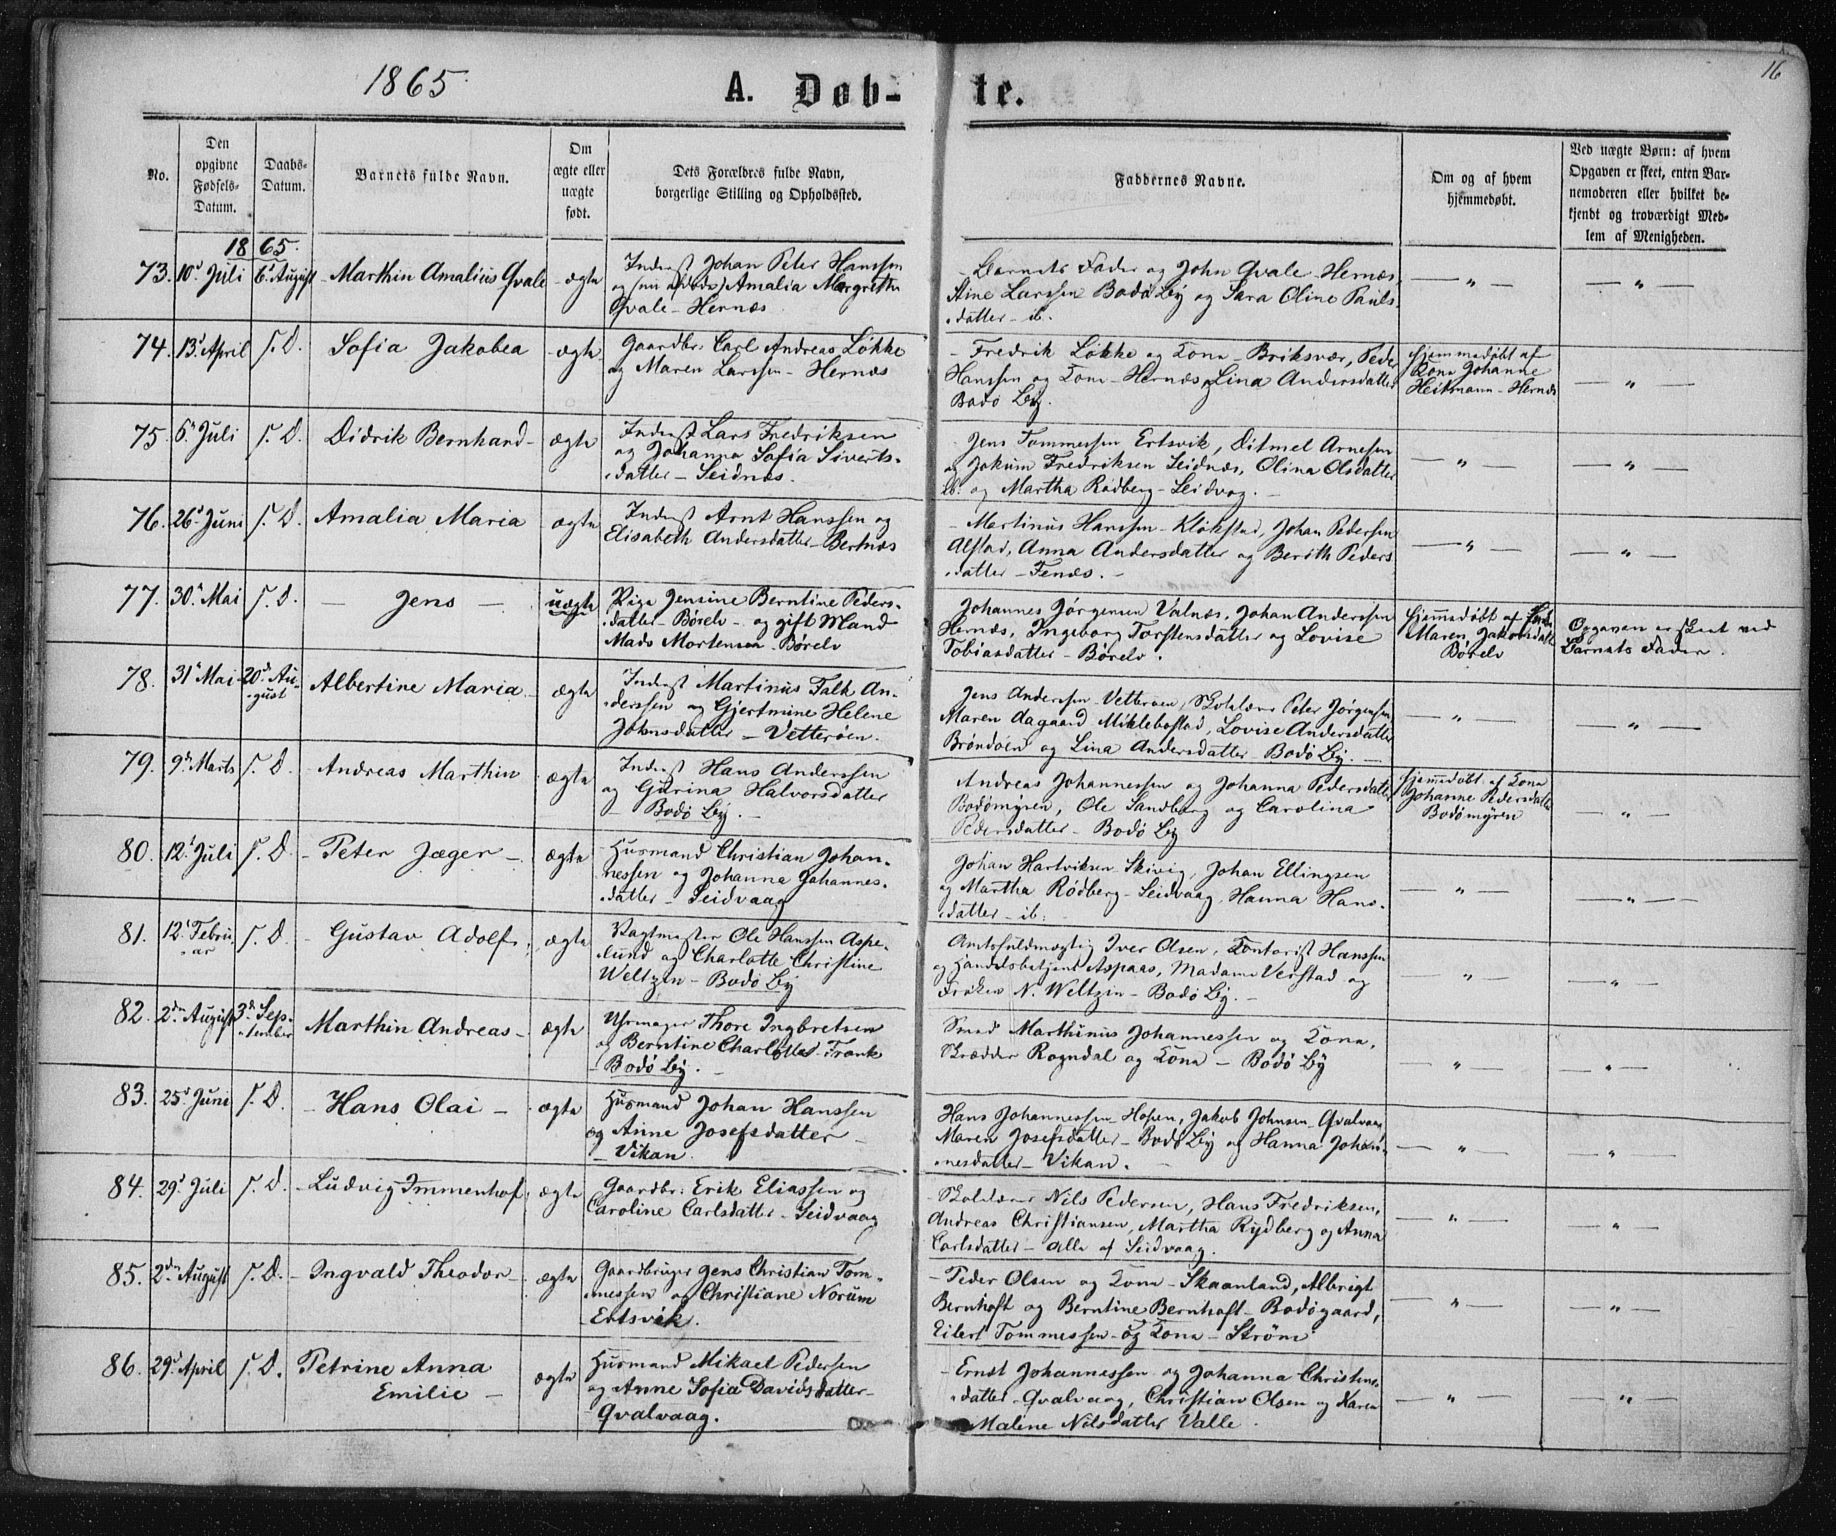 1865
A. Døb-te.
16
No.
Den opgivne Fødsels-Datum.
Daabs-Datum.
Barnets fulde Navn.
Om ægte eller uægte født.
Dets Forældres fulde Navn, borgerlige Stilling og Opholdssted.
Faddernes Navne.
Om og af hvem hjemmedøbt.
Ved uægte Børn: af hvem Opgaven er skeet, enten Barnemoderen eller hvilket bekjendt og troværdigt Medlem af Menigheden.
1865.
73. 10d Juli 6d August Marthin Amalius Qvale ægte
Inderst Johan Peter Hanssen
og Amalia Margrethe
Qvale - Hernæs
- Barnets Fader og John Qvale Hernæs,
Stine Larssen Bodø By og Sara Oline Pauls-
datter - ib.
— " — — " —
74. 13d April s. D. Sofia Jakobea ægte
Gaardbr: Carl Andreas Løkke
og Maren Larssen - Hernæs
- Fredrik Løkke og Kone - Briksvær, Peder
Hanssen og Kone - Hernæs, Lina Andersdatter
Bodø By.
Hjemmedøbt af
Kone Johanne
Heitmann - Hernæs
— " —
75. 6d Juli s. D. Didrik Bernhard - ægte
Inderst Lars Fredriksen
og Johanna Sofia Siverts-
datter - Seidnæs.
Jens Tommessen Ertsvik, Ditmel Arnesen
og Jokum Fredriksen Seidnæs, Olina Olsdatter
ib. og Martha Rødberg - Seidvag. -
— " — — " —
76. 26d Juni s. D. Amalia Maria ægte
Inderst Arnt Hanssen og
Elisabeth Andersdatter - Bertnæs
- Martinus Hanssen - Kløkstad, Johan Pedersen
Alstad, Anna Andersdatter og Berith Peders-
datter - Fenæs. -
— " — — " —
77. 30d Mai s. D. - Jens - uægte
Pige Jensine Berntine Peders-
datter - Børelv - og gift Mand
Mads Mortensen Børelv
Johannes Jørgensen Valnæs, Johan Anderssen
Hernæs, Ingeborg Torstensdatter og Lovise
Tobiasdatter - Børelv.
Hjemmedøbt af
Maren Jakobsdatter
Børelv
Opgaven er skeet ved
Barnets Fader.
78. 31d Mai 20d August Albertine Maria - ægte
Inderst Martinus Falk An-
derssen og Gjertmine Helene
Johnsdatter - Vetterøen.
Jens Anderssen - Vetterøen, Skolelærer Peter Jørgensen,
Maren Aagaard Miklebostad, Lovise Andersdatter
Brøndøen og Lina Andersdatter - Bodø By. -
— " — — " —
79. 9d Marts s. D. - Andreas Marthin ægte
Inderst Hans Anderssen
og Gurina Halvorsdatter
- Bodø By. -
Andreas Johannessen og Johanna Pedersdatter
Bodømyren, Ole Sandberg og Carolina
Pedersdatter - Bodø By
Hjemmedøbt af Kone
Johanne Pedersdatter
Bodømyren
— " —
80. 12d Juli s. D. - Peter Jæger - ægte
Husmand Christian Johan-
nessen og Johanna Johannes-
datter - Seidvaag
Johan Hartviksen Skivig, Johan Ellingsen
og Martha Rødberg - Seidvaag, Hanna Hans-
datter - ib.
— " — — " —
81. 12d Februar s. D. - Gustav Adolf ægte
Vagtmester Ole Hanssen Aspe-
lund og Charlotte Christine
Weltzin - Bodø By
Amtsfuldmægtig Iver Olsen, Kontorist Hanssen
og Handelsbetjent Aspaas, Madame Verstad og
Frøken N. Weltzin - Bodø By. -
— " — — " —
82. 2den August 3d September Marthin Andreas - ægte
Uhrmager Thore Ingbretsen
og Berntine Charlotte Frank
Bodø By. -
Smed Marthinus Johannessen og Kone,
Skrædder Rogndal og Kone - Bodø By
— " — — " —
83. 25d Juni s. D. - Hans Olai - ægte
Husmand Johan Hanssen
og Anne Josefsdatter -
- Vikan.
Hans Johannessen - Hopen, Jakob Johnsen - Qvalvaag,
Maren Josefsdatter - Bodø By og Hanna Johan-
nesdatter - Vikan. -
— " — — " —
84. 29d Juli s. D. - Ludvig Immenhof ægte
Gaardbr: Erik Eliassen og
Caroline Carlsdatter - Seidvaag
- Skolelærer Nils Pedersen, Hans Fredriksen,
Andreas Christiansen, Martha Rydberg og Anna
Carlsdatter - alle af Seidvaag.
— " — — " —
85. 2den August s. D. - Ingvald Theodor - ægte
Gaardbruger Jens Christian Tom-
messen og Christiane Norum
Ertsvik.
- Peder Olsen og Kone - Skaanland, Albrigt
Bernhoft og Berntine Bernhoft - Bodøgaard,
Eilert Tommessen og Kone - Strøm
— " — — " —
86. 29d April s. D. Petrine Anna
Emilie - ægte
Husmand Mikael Pedersen
og Anne Sofia Davidsdatter -
Qvalvaag.
- Ernst Johannessen og Johanna Christens-
datter - Qvalvaag, Christian Olsen og Karen
Maline Nilsdatter Valle.
— " — — " —